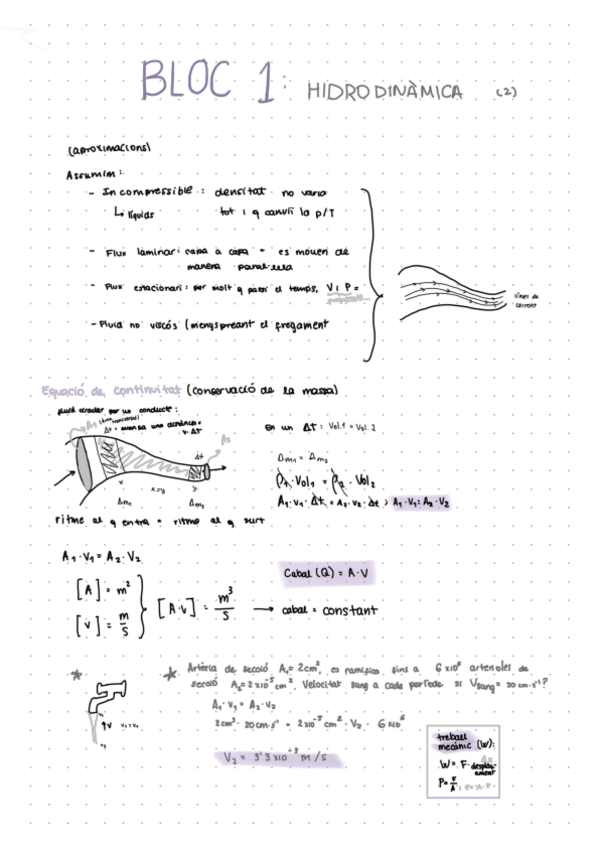 BLOC 1: HIDRODINÀMICA (2)
(aproximacions)
Assumim:
- Incompressible: densitat no varia
↳ líquids tot i q canvii la p/T
- Flux laminar: capa a capa → es mouen de
manera paral·lela
- Flux estacionari: per molt q passi el temps, V i P =
línies de corrent
- Fluid no viscós (menyspreant el fregament
Equació de continuitat (conservació de la massa)
fluid circular per un conducte:
Δt = avança una distància =
v·Δt
En un Δt: Vol.1 = Vol.2
Δm₁ = Δm₂
ρ₁·Vol₁ = ρ₂·Vol₂
A₁·V₁·Δt = A₂·V₂·Δt; A₁·V₁=A₂·V₂
x x=y y
Δm₁ Δm₂
ritme al q entra = ritme al q surt
A₁·V₁=A₂·V₂
Cabal (Q) = A·V
[A] = m²
[v] = m/s
[A·v] = m³/s → cabal = constant
* Artèria de secció A₁=2cm², es ramifica fins a 6x10⁶ arterioles de
secció A₂=2x10⁻⁵cm². Velocitat sang a cada si Vsang = 20cm·s⁻¹?
A₁·V₁=A₂·V₂
2cm²·20cm·s⁻¹ = 2x10⁻⁵cm²·V₂·6x10⁶
V₂ = 3'3x10⁻³ m/s
treball
mecànic (W):
W = F·desplaçament
P=F/A